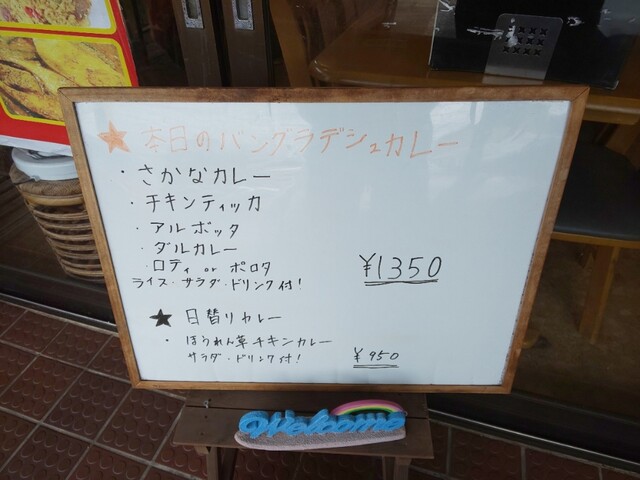 ★本日のバングラデシュカレー
・さかなカレー
・チキンティッカ
・アルボッタ
・ダルカレー
・ロティ or ポロタ
ライス・サラダ・ドリンク付!
¥1350
★日替りカレー
・ほうれん草チキンカレー
サラダ・ドリンク付!
¥950
Welcome